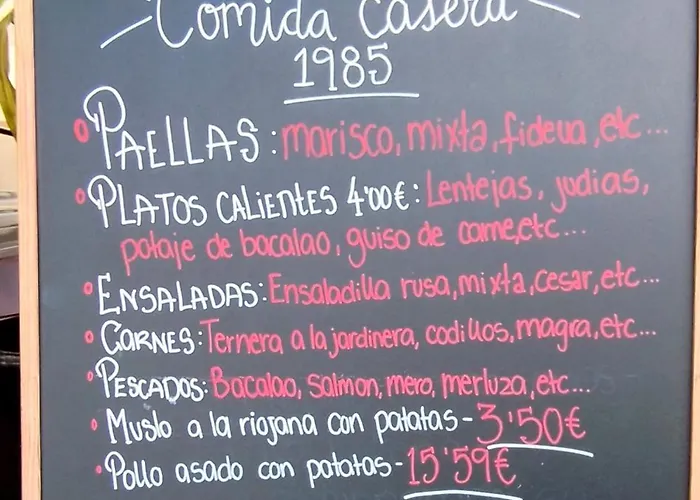 Comida Casera
1985
PAELLAS: marisco, mixta, fideua, etc...
PLATOS CALIENTES 4'00€: Lentejas, judias,
potaje de bacalao, guiso de carne,etc...
ENSALADAS: Ensaladilla rusa, mixta, cesar, etc...
CARNES: Ternera a la jardinera, codillos, magra, etc...
PESCADOS: Bacalao, salmon, mero, merluza, etc...
Muslo a la riojana con patatas - 3'50€
Pollo asado con patatas - 15'59€